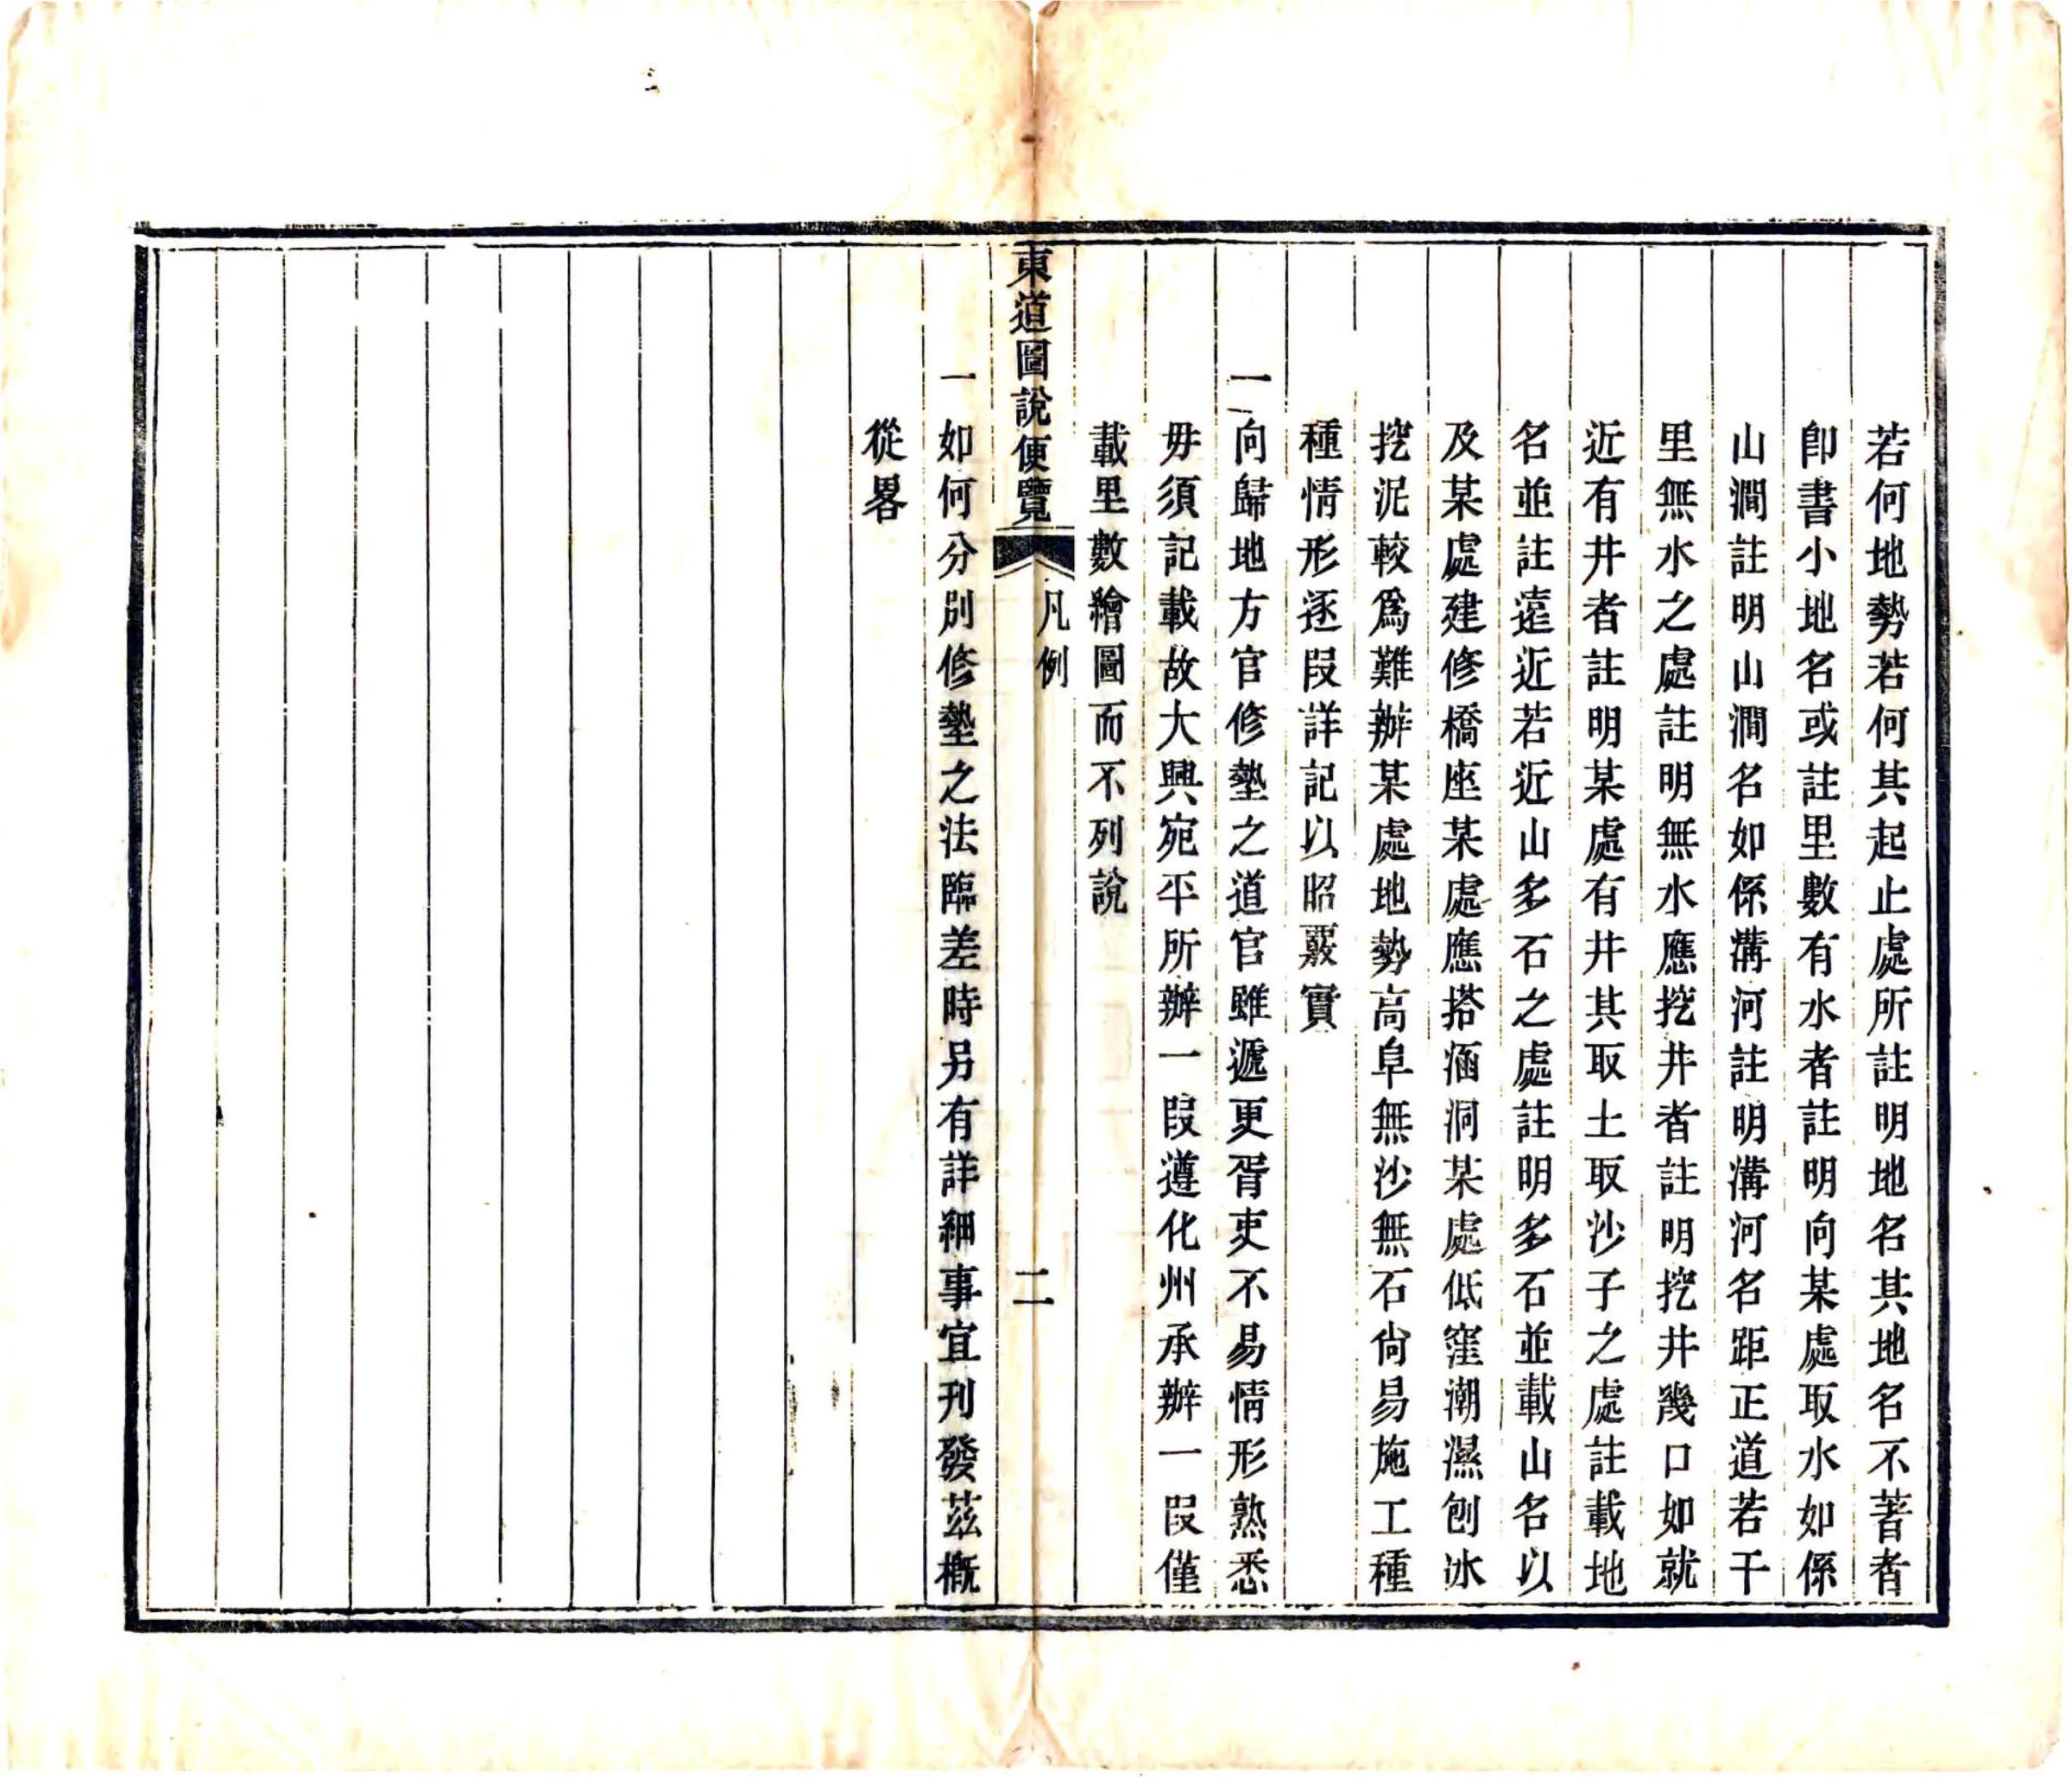 若何地勢若何其起止處所註明地名其地名不著者
卽書小地名或註里數有水者註明向某處取水如係
山澗註明山澗名如係溝河註明溝河名距正道若干
里無水之處註明無水應挖井者註明挖井幾口如就
近有井者註明某處有井其取土取沙子之處註載地
名並註遠近若近山多石之處註明多石並載山名以
及某處建修橋座某處應搭涵洞某處低窪潮濕刨冰
挖泥較爲難辦某處地勢高阜無沙無石尙易施工種
種情形逐段詳記以昭覈實
一向歸地方官修墊之道官雖遞更胥吏不易情形熟悉
毋須記載故大興宛平所辦一段遵化州承辦一段僅
載里數繪圖而不列說
東道圖說便覽 凡例 二
一如何分別修墊之法臨差時另有詳細事宜刊發茲槪
從畧